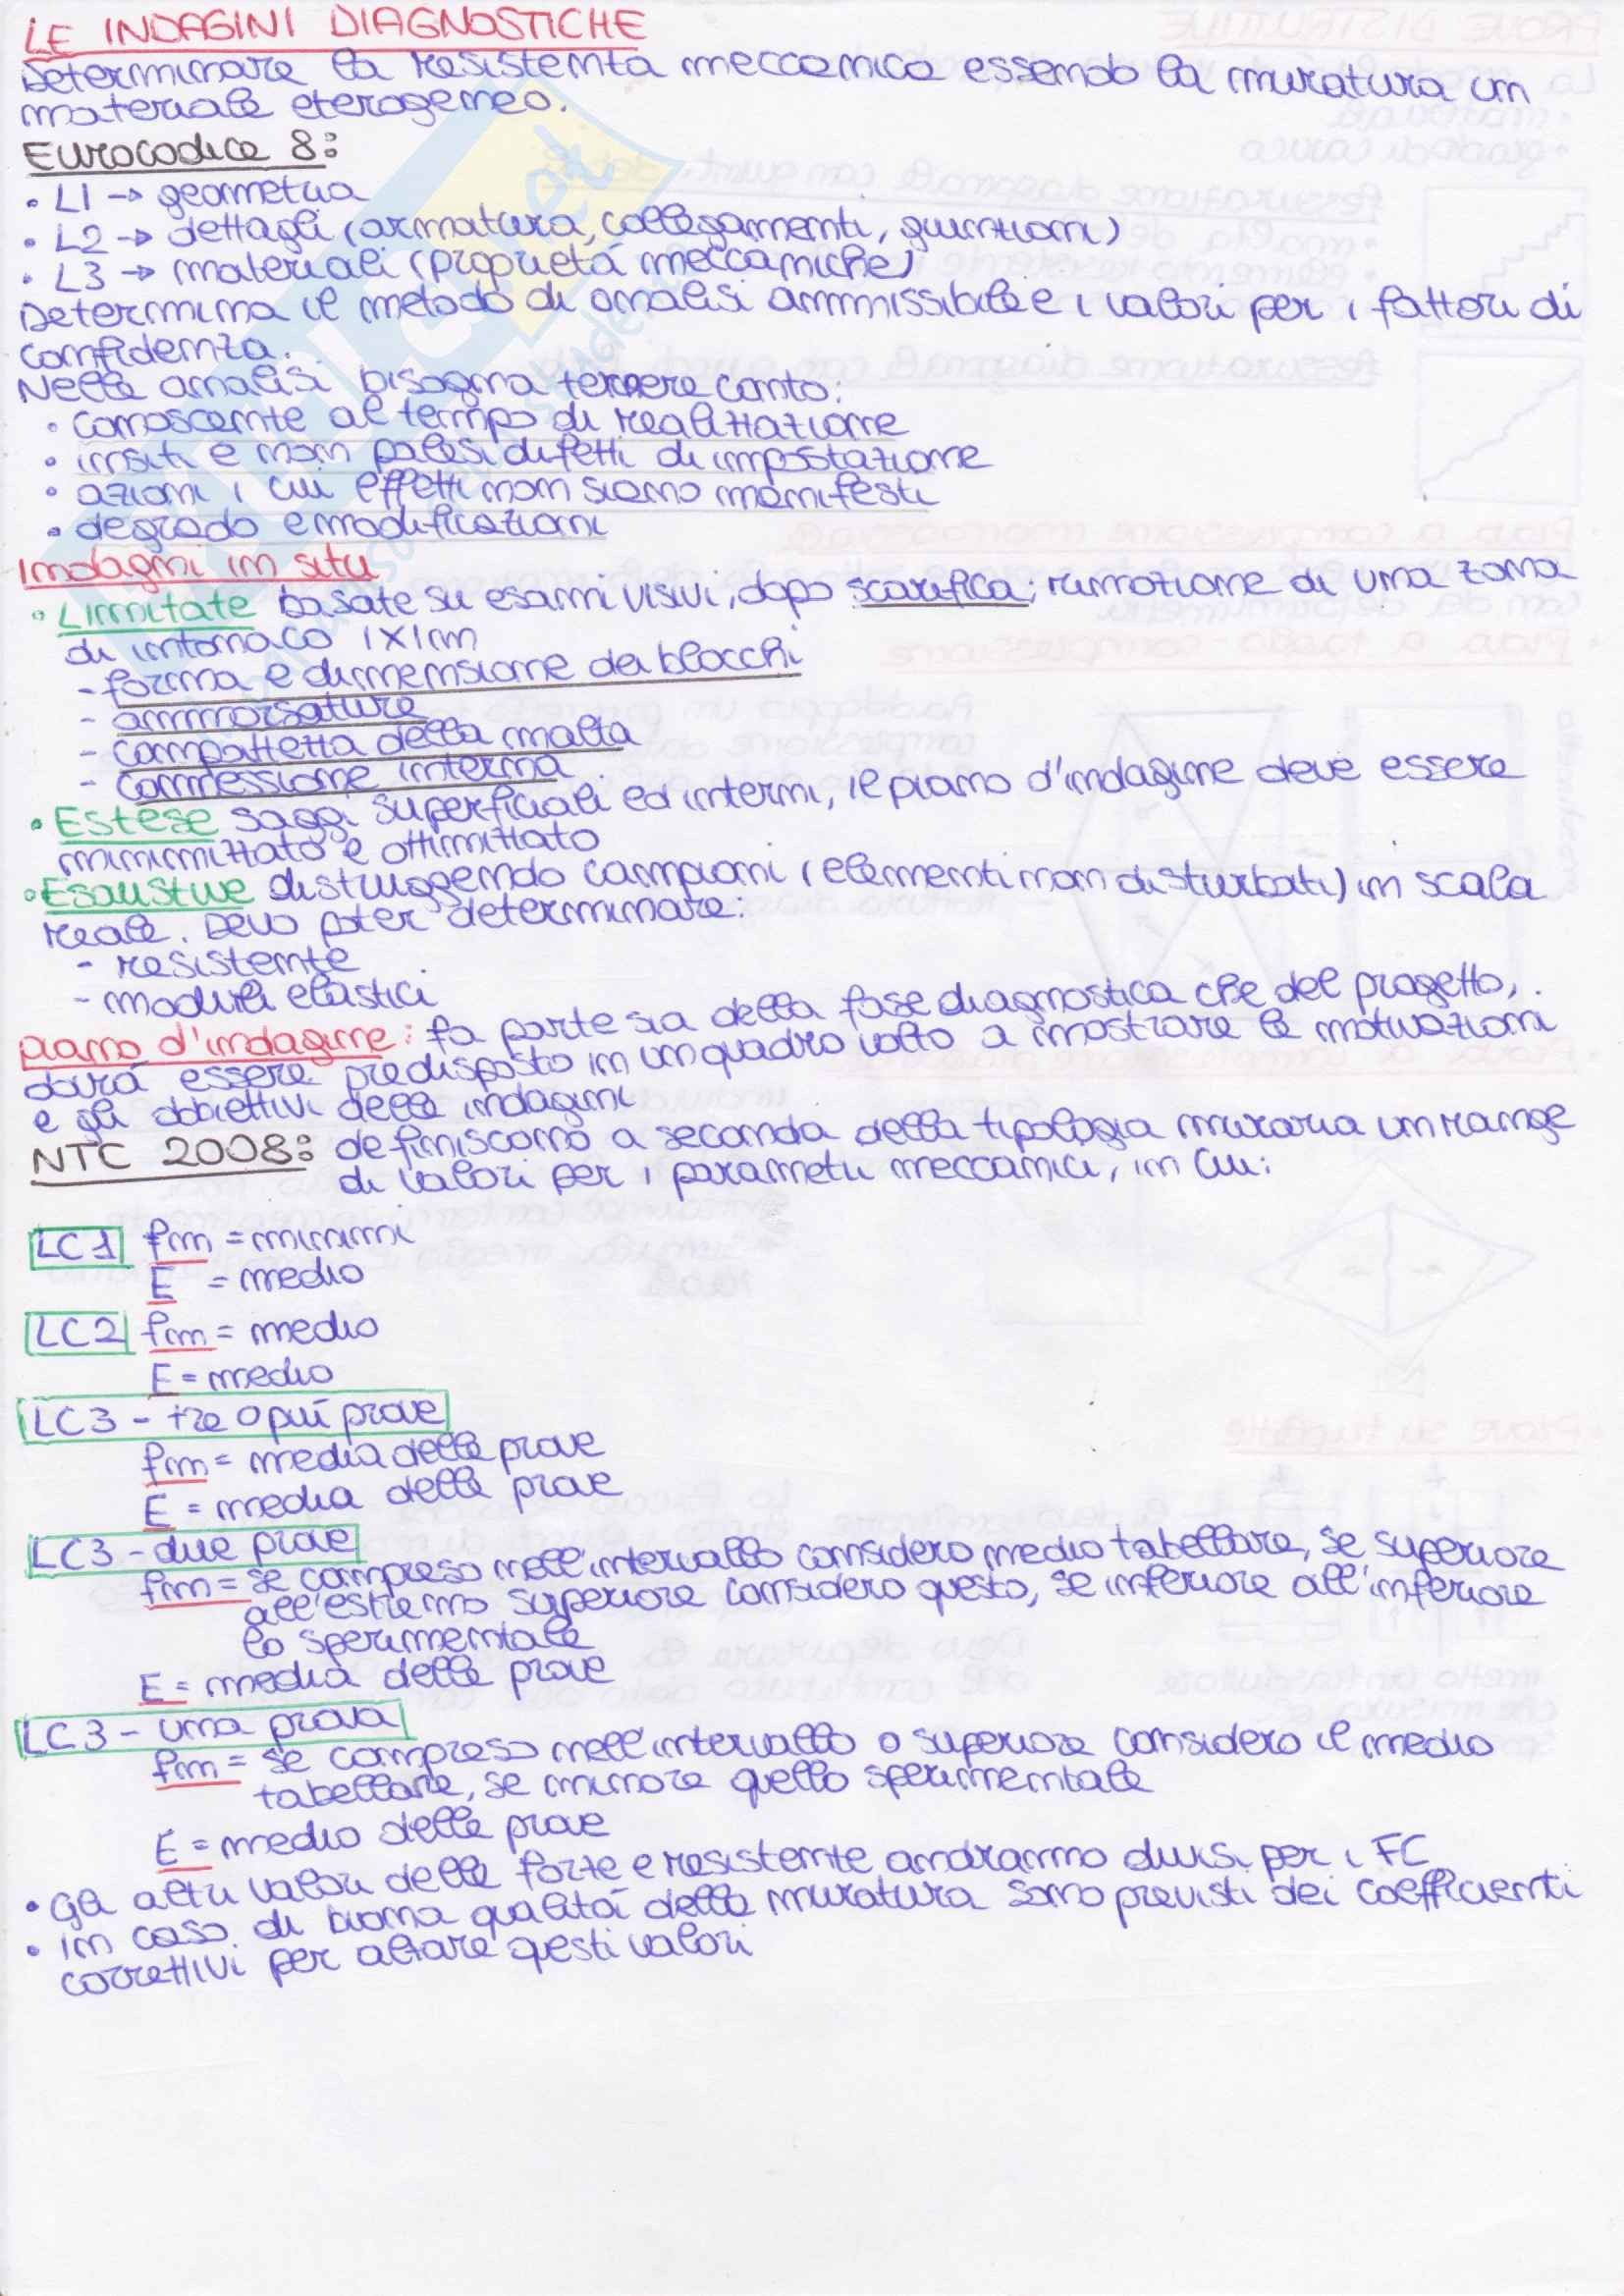 LE INDAGINI DIAGNOSTICHE
Determinare la resistenza meccanica essendo la muratura un
materiale eterogeneo.
Eurocodice 8:
• L1 → geometria
• L2 → dettagli (armatura, collegamenti, giunzioni)
• L3 → materiali (proprietá meccaniche)
Determina il metodo di analisi ammissibile e i valori per i fattori di
confidenza.
Nelle analisi bisogna tenere conto:
• conoscenze al tempo di realizzazione
• insiti e non palesi difetti di impostazione
• azioni i cui effetti non siano manifesti
• degrado e modificazioni
Indagini in situ
• Limitate basate su esami visivi, dopo scarifica; rimozione di una zona
di intonaco 1x1m
- forma e dimensione dei blocchi
- ammorsature
- compattezza della malta
- connessione interna
• Estese saggi superficiali ed interni, il piano d'indagine deve essere
minimizzato e ottimizzato
• Esaustive distruggendo campioni (elementi non disturbati) in scala
reale. Devo poter determinare:
- resistenze
- moduli elastici
piano d'indagine: fa parte sia della fase diagnostica che del progetto,
dovrá essere predisposto in un quadro volto a mostrare le motivazioni
e gli obbiettivi delle indagini
NTC 2008: definiscono a seconda della tipologia muraria un range
di valori per i parametri meccanici, in cui:
LC1 fm = minimi
E = medio
LC2 fm = medio
E = medio
LC3 - tre o piú prove
fm = media delle prove
E = media delle prove
LC3 - due prove
fm = se compreso nell'intervallo considero medio tabellare, se superiore
all'estremo superiore considero questo, se inferiore all'inferiore
lo sperimentale
E = media delle prove
LC3 - una prova
fm = se compreso nell'intervallo o superiore considero il medio
tabellare, se minore quello sperimentale
E = medio delle prove
• Gli altri valori delle forze e resistenze andranno divisi per i FC
• in caso di buona qualitá della muratura sono previsti dei coefficienti
correttivi per alzare questi valori